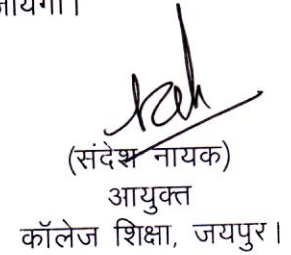 जायेगी।
(संदेश नायक)
आयुक्त
कॉलेज शिक्षा, जयपुर।